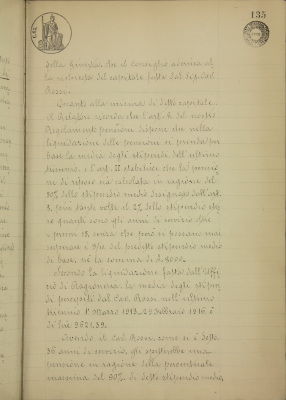 135
della Giunta, che il consiglio aderisca al
la richiesta del capitale fatta dal Sig. Cav.
Rossi.
Quanto alla misura di detto capitale
il Relatore ricorda che l'art. 2 del nostro
Regolamento pensioni dispone che nella
liquidazione delle pensioni si prenda per
base la media degli stipendi dell'ultimo
triennio, e l'art. stabilisce che la pensio
ne di riposo sia calcolata in ragione del
50% dello stipendio medio designato dall'art.
2, più tante volte il 2% dello stipendio stes
so quanti sono gli anni di servizio oltre
i primi 15, senza che però si possano mai
superare i 9/10 del predetto stipendio medio
di base, nè la somma di L. 8000.
Secondo la liquidazione fatta dall'Uffi
cio di Ragioneria, la media degli stipen
di percepiti dal Cav. Rossi nell'ultimo
triennio, 1° Marzo 1913 - 29 Febbraio 1916, è
di lire 3621,39.
Avendo il Cav. Rossi, come si è detto,
36 anni di servizio, gli spetterebbe una
pensione in ragione della percentuale
massima del 90% di detto stipendio medio,